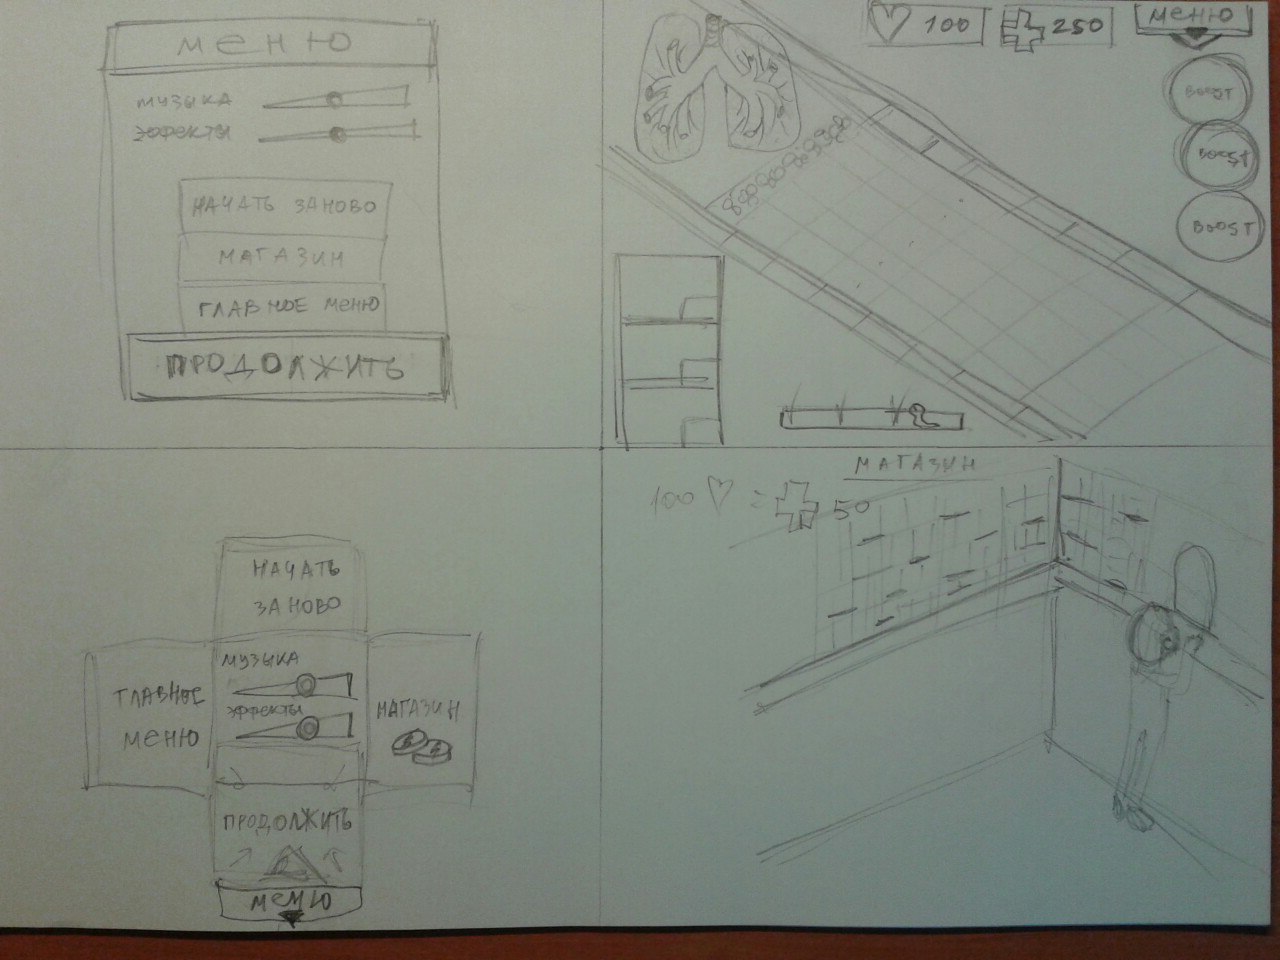 МЕНЮ
МУЗЫКА
ЭФФЕКТЫ
НАЧАТЬ ЗАНОВО
МАГАЗИН
ГЛАВНОЕ МЕНЮ
ПРОДОЛЖИТЬ
100
250
МЕНЮ
BOOST
BOOST
BOOST
НАЧАТЬ
ЗАНОВО
ГЛАВНОЕ
МЕНЮ
МУЗЫКА
ЭФФЕКТЫ
МАГАЗИН
ПРОДОЛЖИТЬ
МЕНЮ
МАГАЗИН
100 = 50